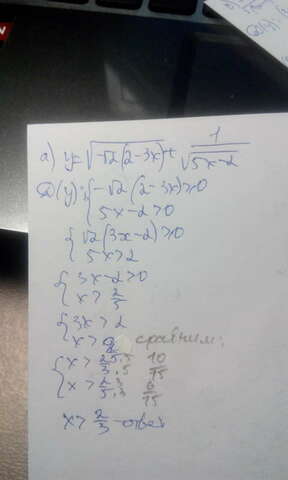 а) y=√-√2(2-3x) + 1/√5x-2
D(y): { -√2(2-3x)≥0
5x-2>0
{ √2(3x-2)≥0
5x>2
{ 3x-2>0
x> 2/5
{ 3x>2
x> сравним:
{ x> 2·5/3·5 10/15
x> 2·3/5·3 6/15
x> 2/3 - ответ